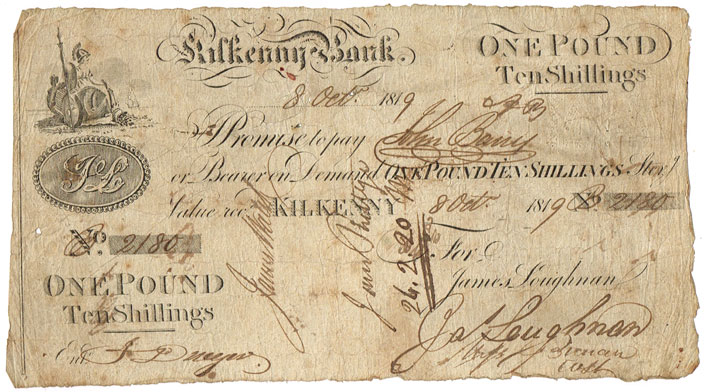 Kilkenny Bank.
ONE POUND
Ten Shillings
8 Oct. 1819
I Promise to pay John Barry
or Bearer on Demand ONE POUND TEN SHILLINGS Ster.
Value rec. KILKENNY 8 Oct. 1819 No. 2180
JL
No. 2180
ONE POUND
Ten Shillings
For
James Loughnan
Jas Loughnan
Ent.
26.2.20
James